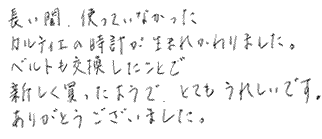 長い間、使っていなかった
カルティエの時計が生まれかわりました。
ベルトも交換したことで
新しく買ったようで、とてもうれしいです。
ありがとうございました。